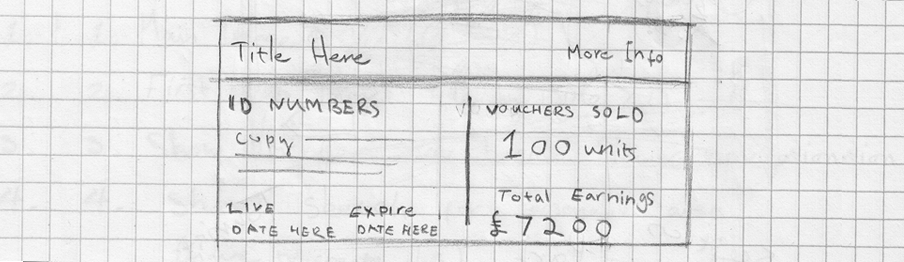 Title Here
More Info
ID NUMBERS
copy
LIVE
DATE HERE
EXPIRE
DATE HERE
VOUCHERS SOLD
100 units
Total Earnings
£7200